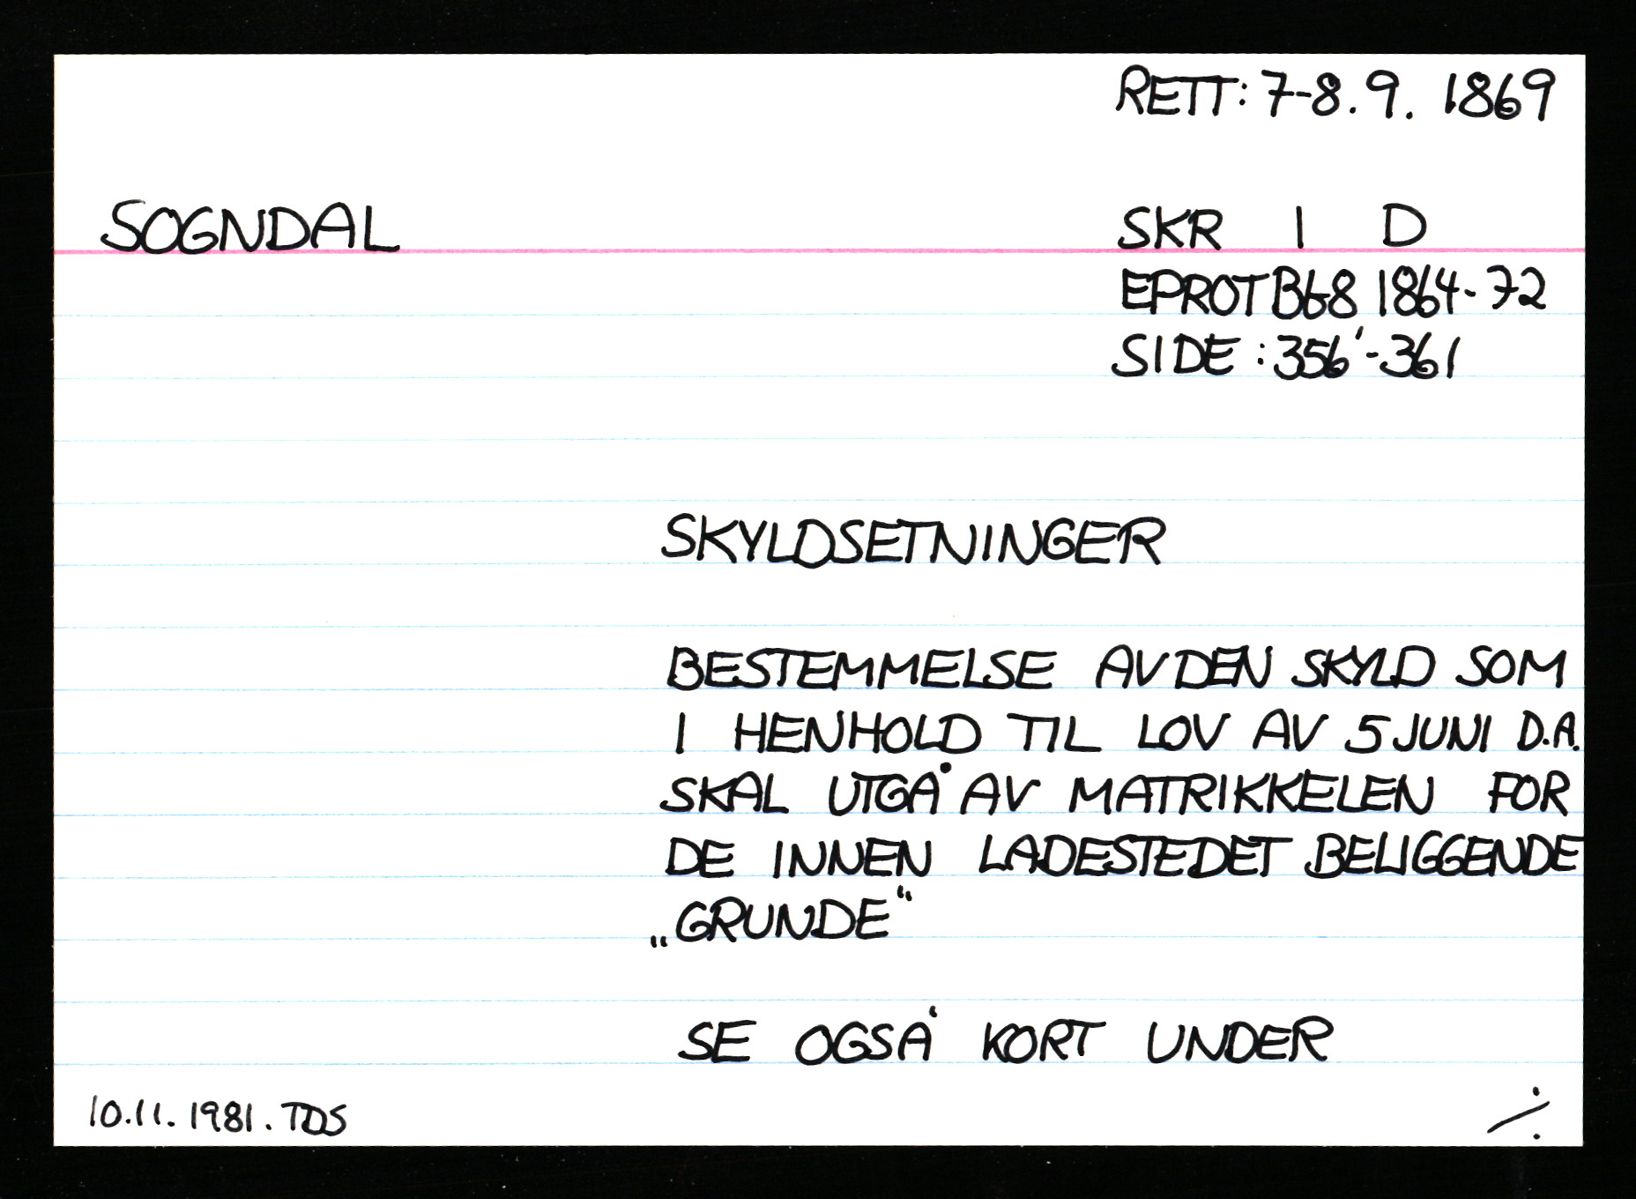 RETT: 7-8. 9. 1869
SOGNDAL SKR I D
EPROT B68 1864-72
SIDE : 356'-361
SKYLDSETNINGER
BESTEMMELSE AV DEN SKYLD SOM
I HENHOLD TIL LOV AV 5 JUNI D.A.
SKAL UTGÅ AV MATRIKKELEN FOR
DE INNEN LADESTEDET BELIGGENDE
„GRUNDE“
SE OGSÅ KORT UNDER
10.11.1981. TDS ./.